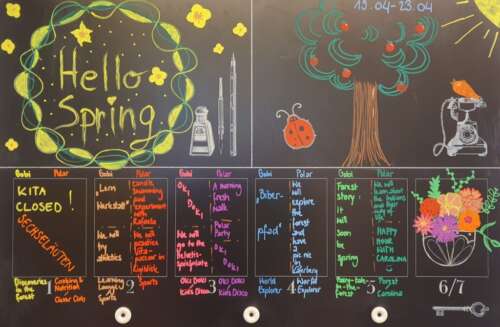 19.04-23.04
Hello
Spring
Gobi Polar
KITA
CLOSED!
SECHSELÄUTEN
Discoveries
in the
Forest
Cooking &
Nutrition
1
Gobi Polar
"Lern
Werkstatt"
We will
try
athletics
candle
swimming
and
experiment
with
We will
practice
Vita-
Learning
Sports
2
Sports
Gobi Polar
Oki
Doki
We will
go to the
A morning
fresh
walk
Polar
Party
Okti Doki
Kids Disco
3
Oki Doki
Kids Disco
Gobi Polar
"Biber-
pfad"
We
will
explore
the
forest
and
have
a
picnic
in
World
Explorer
4
World
Explorer
Gobi Polar
Forest
story:
it
will
soon
be
Spring
We will
learn about
the Indians
and their
way of
life
HAPPY
HOUR
WITH
CAROLINA
in-the-
Forest
5
Forest
Carolina
6/7